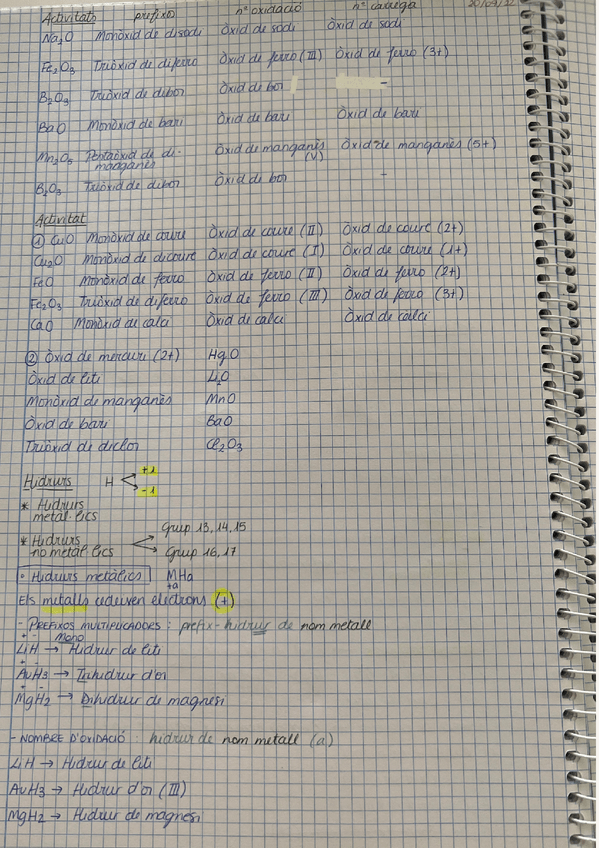 Activitats prefixos nº oxidació nº càrrega 20/09/22
Na₂O Monòxid de disodi Òxid de sodi Òxid de sodi
Fe₂O₃ Triòxid de diferro Òxid de ferro (III) Òxid de ferro (3+)
B₂O₃ Triòxid de dibor Òxid de bor -
BaO Monòxid de bari Òxid de bari Òxid de bari
Mn₂O₅ Pentaòxid de di- Òxid de manganès Òxid de manganès (5+)
manganès (V)
B₂O₃ Triòxid de dibor Òxid de bor -
Activitat
① CuO Monòxid de coure Òxid de coure (II) Òxid de coure (2+)
Cu₂O Monòxid de dicoure Òxid de coure (I) Òxid de coure (1+)
FeO Monòxid de ferro Òxid de ferro (II) Òxid de ferro (2+)
Fe₂O₃ Triòxid de diferro Òxid de ferro (III) Òxid de ferro (3+)
CaO Monòxid de calci Òxid de calci Òxid de calci
② Òxid de mercuri (2+) HgO
Òxid de liti Li₂O
Monòxid de manganès MnO
Òxid de bari BaO
Triòxid de diclor Cl₂O₃
Hidrurs H +1
-1
* Hidrurs
metàl·lics
* Hidrurs Grup 13, 14, 15
no metàl·lics Grup 16, 17
· Hidrurs metàlics MHa
+a
Els metalls cedeixen electrons (+)
- PREFIXOS MULTIPLICADORS: prefix-hidrur de nom metall
+ - Mono
LiH → Hidrur de liti
+ -
AuH3 → Trihidrur d'or
+ -
MgH2 → Dihidrur de magnesi
- NOMBRE D'OXIDACIÓ: hidrur de nom metall (a)
LiH → Hidrur de liti
AuH3 → Hidrur d'or (III)
MgH2 → Hidrur de magnesi